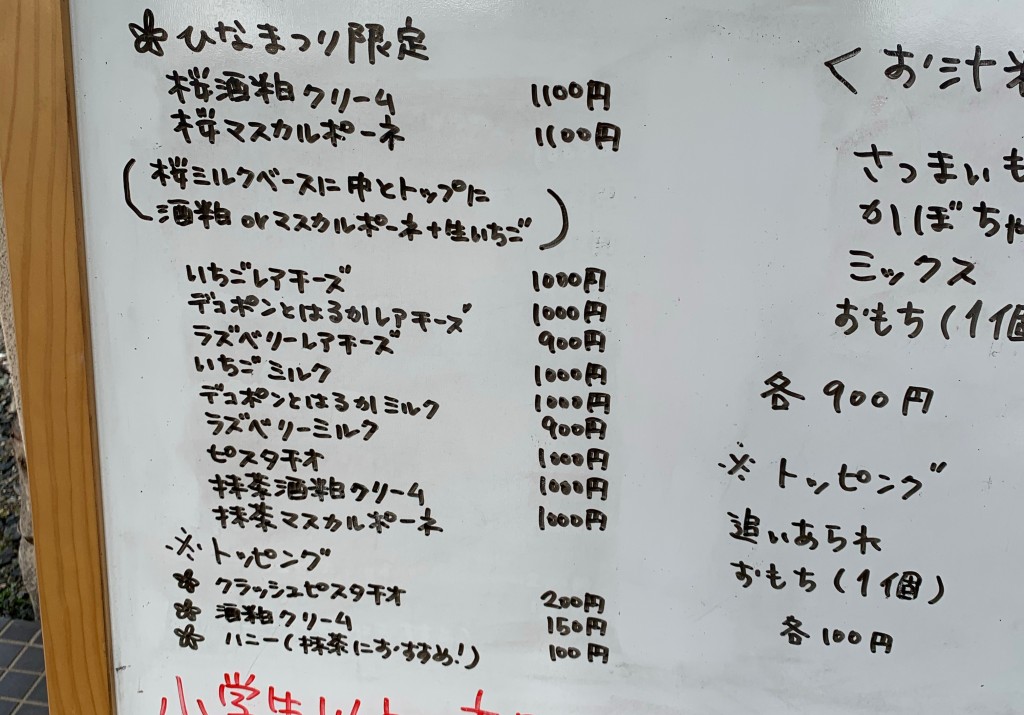 ひなまつり限定
桜酒粕クリーム 1100円
桜マスカルポーネ 1100円
(桜ミルクベースに中とトップに
酒粕orマスカルポーネ+生いちご)
いちごレアチーズ 1000円
デコポンとはるかレアチーズ 1000円
ラズベリーレアチーズ 900円
いちごミルク 1000円
デコポンとはるかミルク 1000円
ラズベリーミルク 900円
ピスタチオ 1000円
抹茶酒粕クリーム 1000円
抹茶マスカルポーネ 1000円
※トッピング
クラッシュピスタチオ 200円
酒粕クリーム 150円
ハニー(抹茶におすすめ!) 100円
小学生以上
<お汁
さつまいも
かぼちゃ
ミックス
おもち(1個
各900円
※トッピング
追いあられ
おもち(1個)
各100円